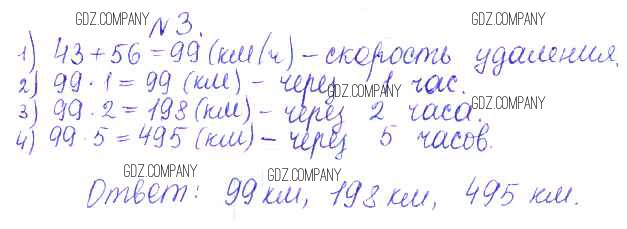 GDZ.COMPANY
№ 3.
GDZ.COMPANY
1) 43 + 56 = 99 (км/ч) – скорость удаления.
2) 99 · 1 = 99 (км) – через 1 час.
GDZ.COMPANY
3) 99 · 2 = 198 (км) – через 2 часа.
GDZ.COMPANY
4) 99 · 5 = 495 (км) – через 5 часов.
GDZ.COMPANY
GDZ.COMPANY
GDZ.COMPANY
Ответ: 99 км, 198 км, 495 км.